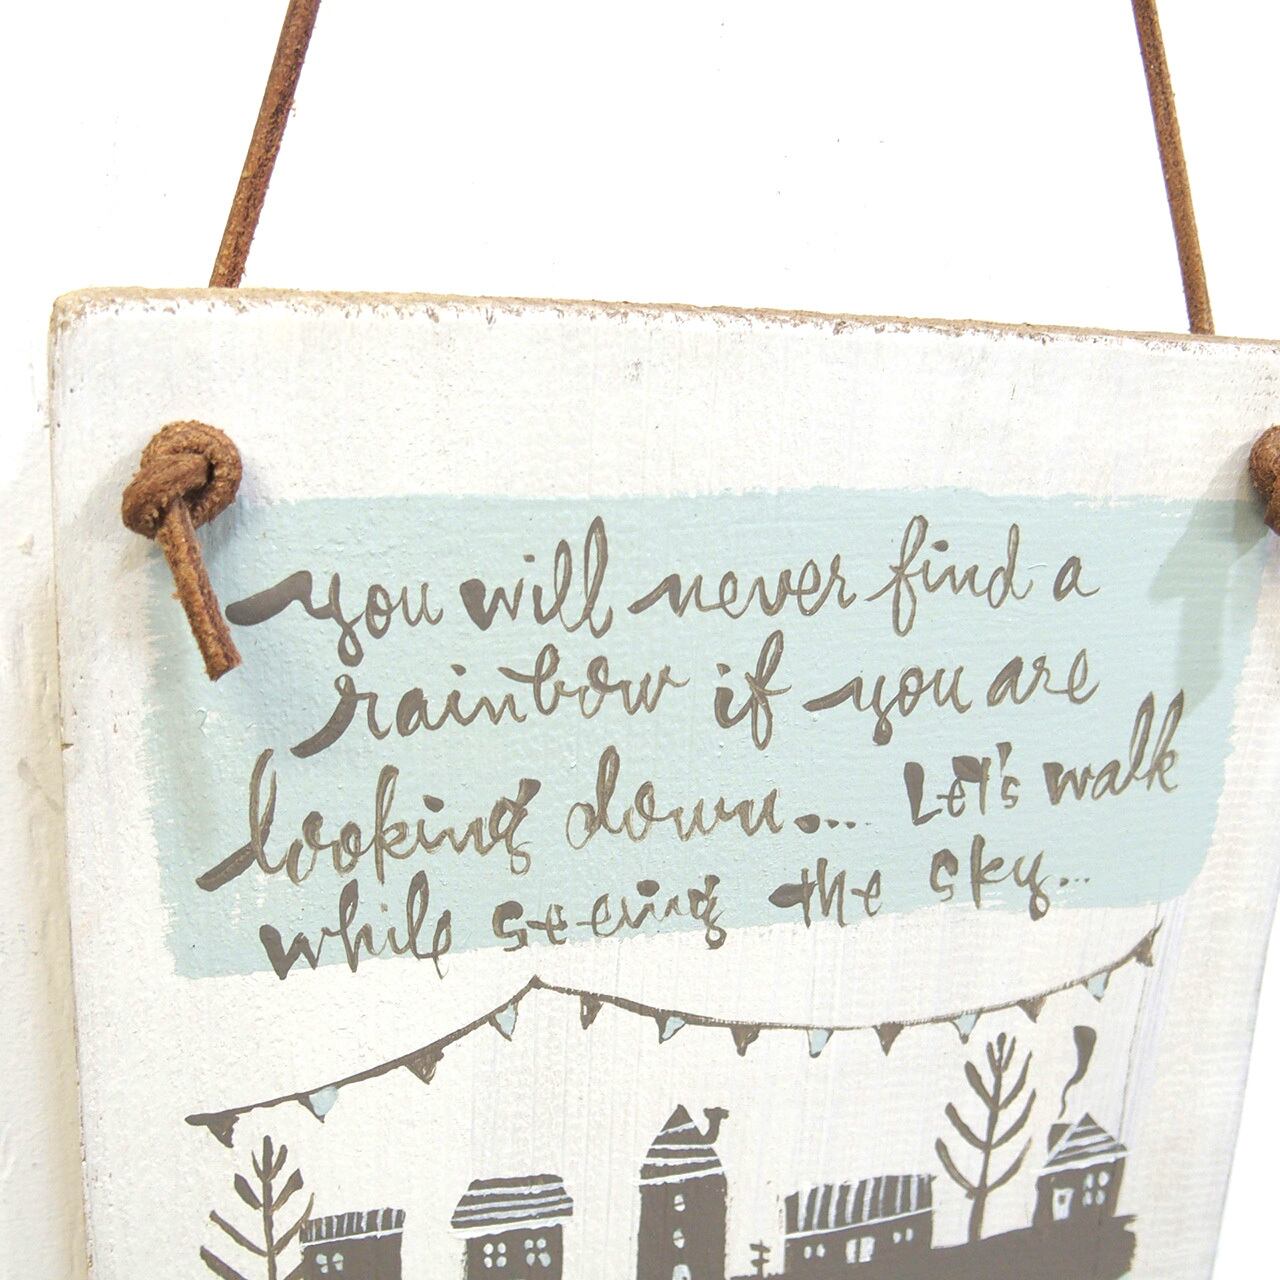 you will never find a
rainbow if you are
looking down... Let's walk
while seeing the sky...